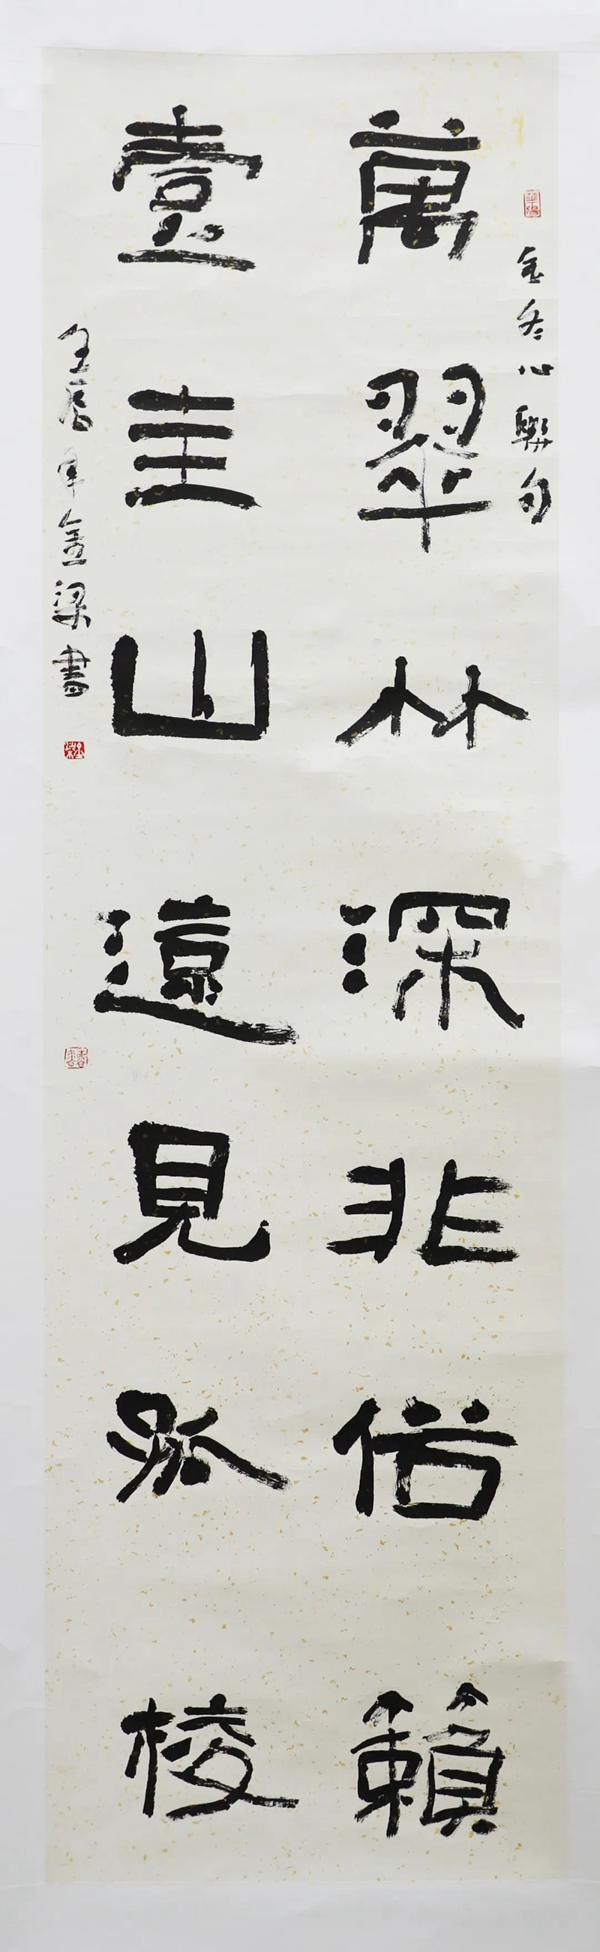 金冬心聯句
萬翠竹深非俗籟
壹圭山遠見孤棱
壬辰年金梁書